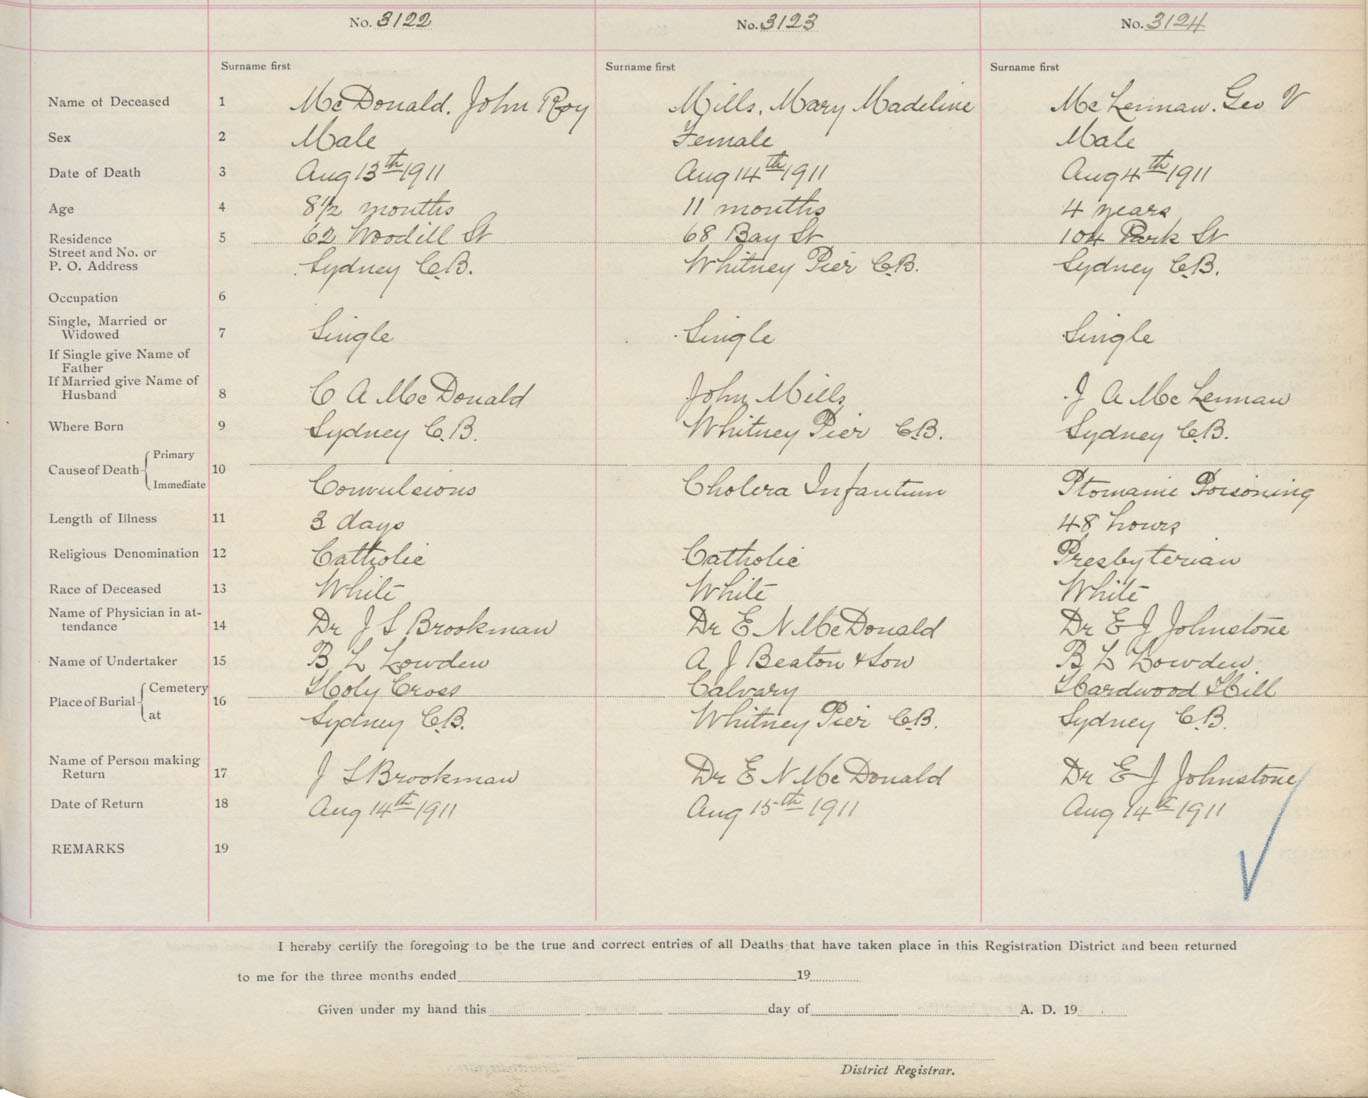 No. 3122 No. 3123 No. 3124
Surname first Surname first Surname first
Name of Deceased 1 McDonald, John Roy Mills, Mary Madeline McLennan, Geo V
Sex 2 Male Female Male
Date of Death 3 Aug 13th 1911 Aug 14th 1911 Aug 4th 1911
Age 4 8½ months 11 months 4 years
Residence 5 62 Woodill St 68 Bay St 104 Park St
Street and No. or
P. O. Address Sydney C.B. Whitney Pier C.B. Sydney C.B.
Occupation 6
Single, Married or
Widowed 7 Single Single Single
If Single give Name of
Father
If Married give Name of
Husband 8 C A McDonald John Mills J A McLennan
Where Born 9 Sydney C.B. Whitney Pier C.B. Sydney C.B.
Cause of Death Primary 10
Immediate Convulsions Cholera Infantum Ptomaine Poisoning
Length of Illness 11 3 days 48 hours
Religious Denomination 12 Catholic Catholic Presbyterian
Race of Deceased 13 White White White
Name of Physician in at-
tendance 14 Dr J S Brookman Dr E N McDonald Dr E J Johnstone
Name of Undertaker 15 B L Lowden A J Beaton & Son B L Lowden
Place of Burial Cemetery 16 Holy Cross Calvary Hardwood Hill
at Sydney C.B. Whitney Pier C.B. Sydney C.B.
Name of Person making
Return 17 J S Brookman Dr E N McDonald Dr E J Johnstone
Date of Return 18 Aug 14th 1911 Aug 15th 1911 Aug 14th 1911
REMARKS 19
I hereby certify the foregoing to be the true and correct entries of all Deaths that have taken place in this Registration District and been returned
to me for the three months ended 19
Given under my hand this day of A. D. 19
District Registrar.